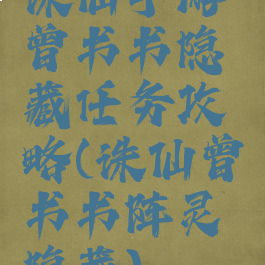 诛仙手游
曾书书隐
藏任务攻
略(诛仙曾
书书阵灵
隐藏)